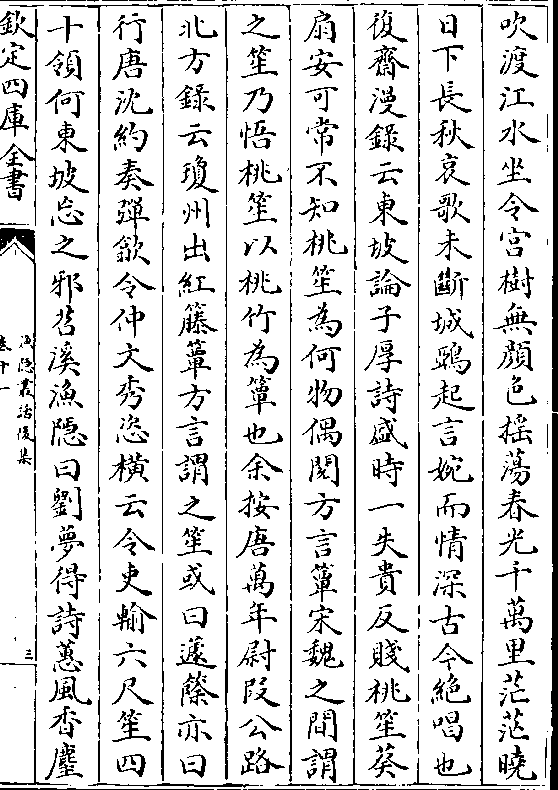 吹渡江水坐令宫樹無顔色揺蕩春光千萬里茫茫曉
日下長秋哀歌未斷城鵶起言婉而情深古今絶唱也
復齋漫錄云東坡論子厚詩盛時一失貴反賤桃笙葵
扇安可常不知桃笙為何物偶閲方言簟宋魏之間謂
之笙乃悟桃笙以桃竹為簟也余按唐萬年尉段公路
北方錄云瓊州出紅籐簟方言謂之笙或曰籧篨亦曰
行唐沈約奏彈歙令仲文秀恣横云令吏輸六尺笙四
十領何東坡忘之邪苕溪漁隠曰劉夢得詩蕙風香麈
欽定四庫全書
漁隠叢話後集
卷十一
三